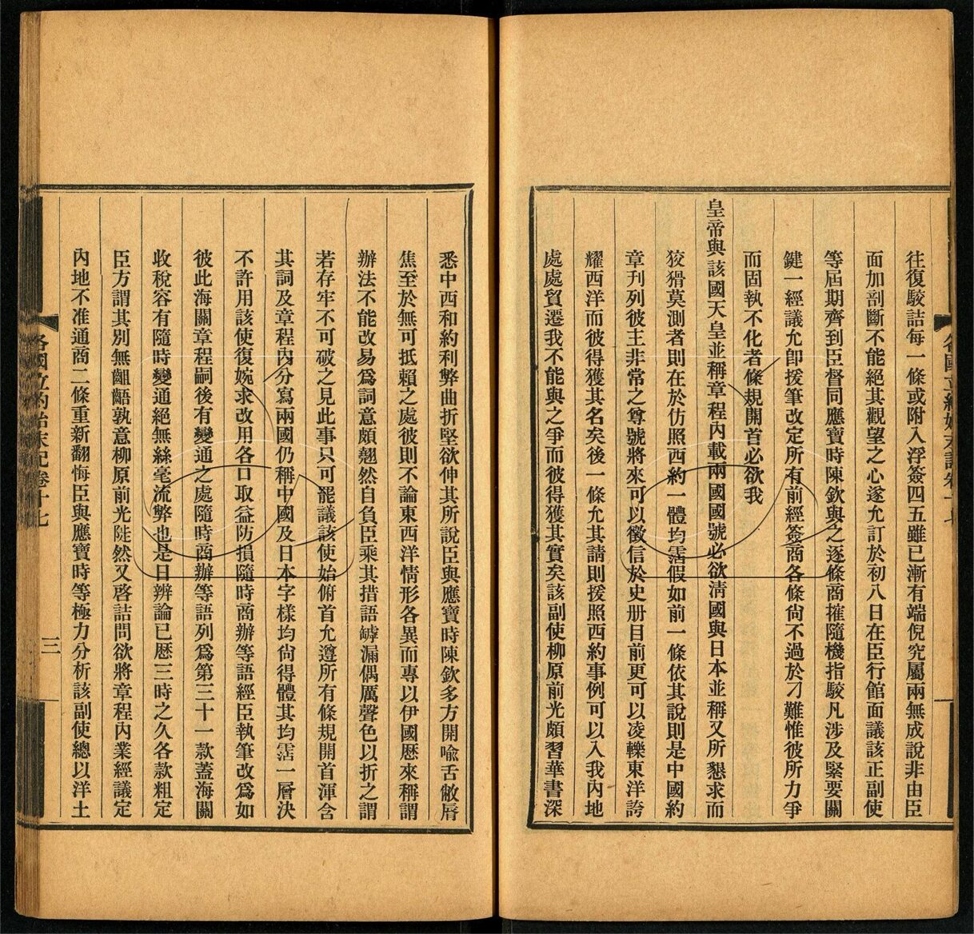 往復駮詰每一條或附入浮簽四五雖已漸有端倪究屬兩無成說非由臣
面加剖斷不能絕其觀望之心遂允訂於初八日在臣行館面議該正副使
等屆期齊到臣督同應寶時陳欽與之逐條商搉隨機指駮凡涉及緊要關
鍵一經議允卽援筆改定所有前經簽商各條尙不過於刁難惟彼所力爭
而固執不化者條規開首必欲我
皇帝與該國天皇並稱章程內載兩國國號必欲清國與日本並稱又所懇求而
狡猾莫測者則在於仿照西約一體均霑假如前一條依其說則是中國約
章刊列彼主非常之尊號將來可以徵信於史册目前更可以凌轢東洋誇
耀西洋而彼得獲其名矣後一條允其請則援照西約事例可以入我內地
處處貿遷我不能與之爭而彼得獲其實矣該副使柳原前光頗習華書深
悉中西和約利弊曲折堅欲伸其所說臣與應寶時陳欽多方開喩舌敝脣
焦至於無可抵賴之處彼則不論東西洋情形各異而專以伊國歷來稱謂
辦法不能改易爲詞意頗翹然自負臣乘其措語罅漏偶厲聲色以折之謂
若存牢不可破之見此事只可罷議該使始俯首允遵所有條規開首渾含
其詞及章程內分寫兩國仍稱中國及日本字樣均尙得體其均霑一層決
不許用該使復婉求改用各口取益防損隨時商辦等語經臣執筆改爲如
彼此海關章程嗣後有變通之處隨時商辦等語列爲第三十一款蓋海關
收稅容有隨時變通絕無絲毫流弊也是日辨論已歷三時之久各款粗定
臣方謂其別無齟齬孰意柳原前光陡然又啓詰問欲將章程內業經議定
內地不准通商二條重新翻悔臣與應寶時等極力分析該副使總以洋土
各國立約始末記卷十七
三